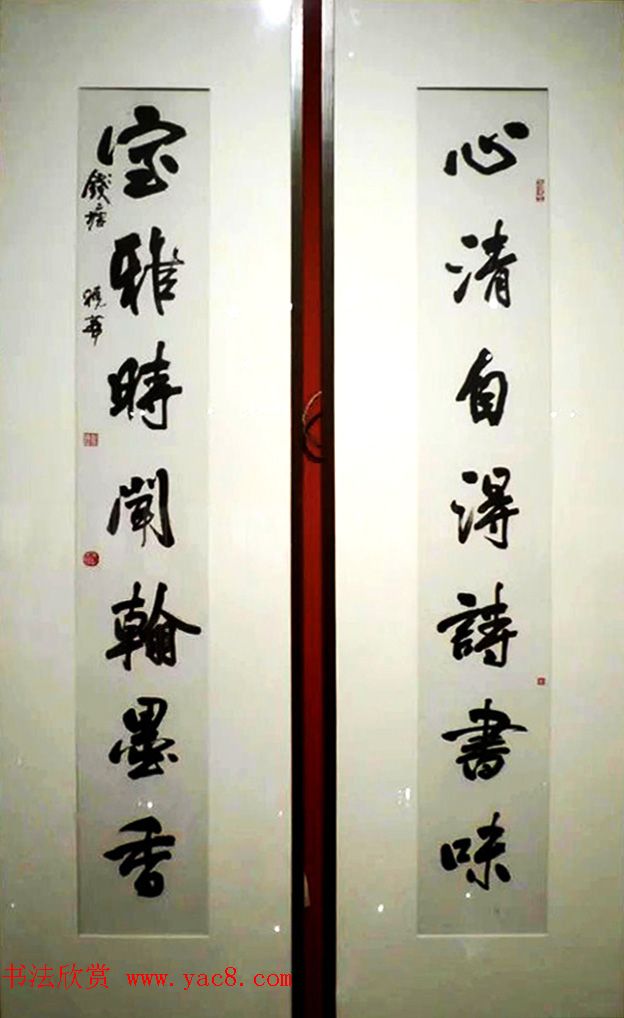 心清自得詩書味
室雅時聞翰墨香
錢塘
曉華
书法欣赏 www.yac8.com